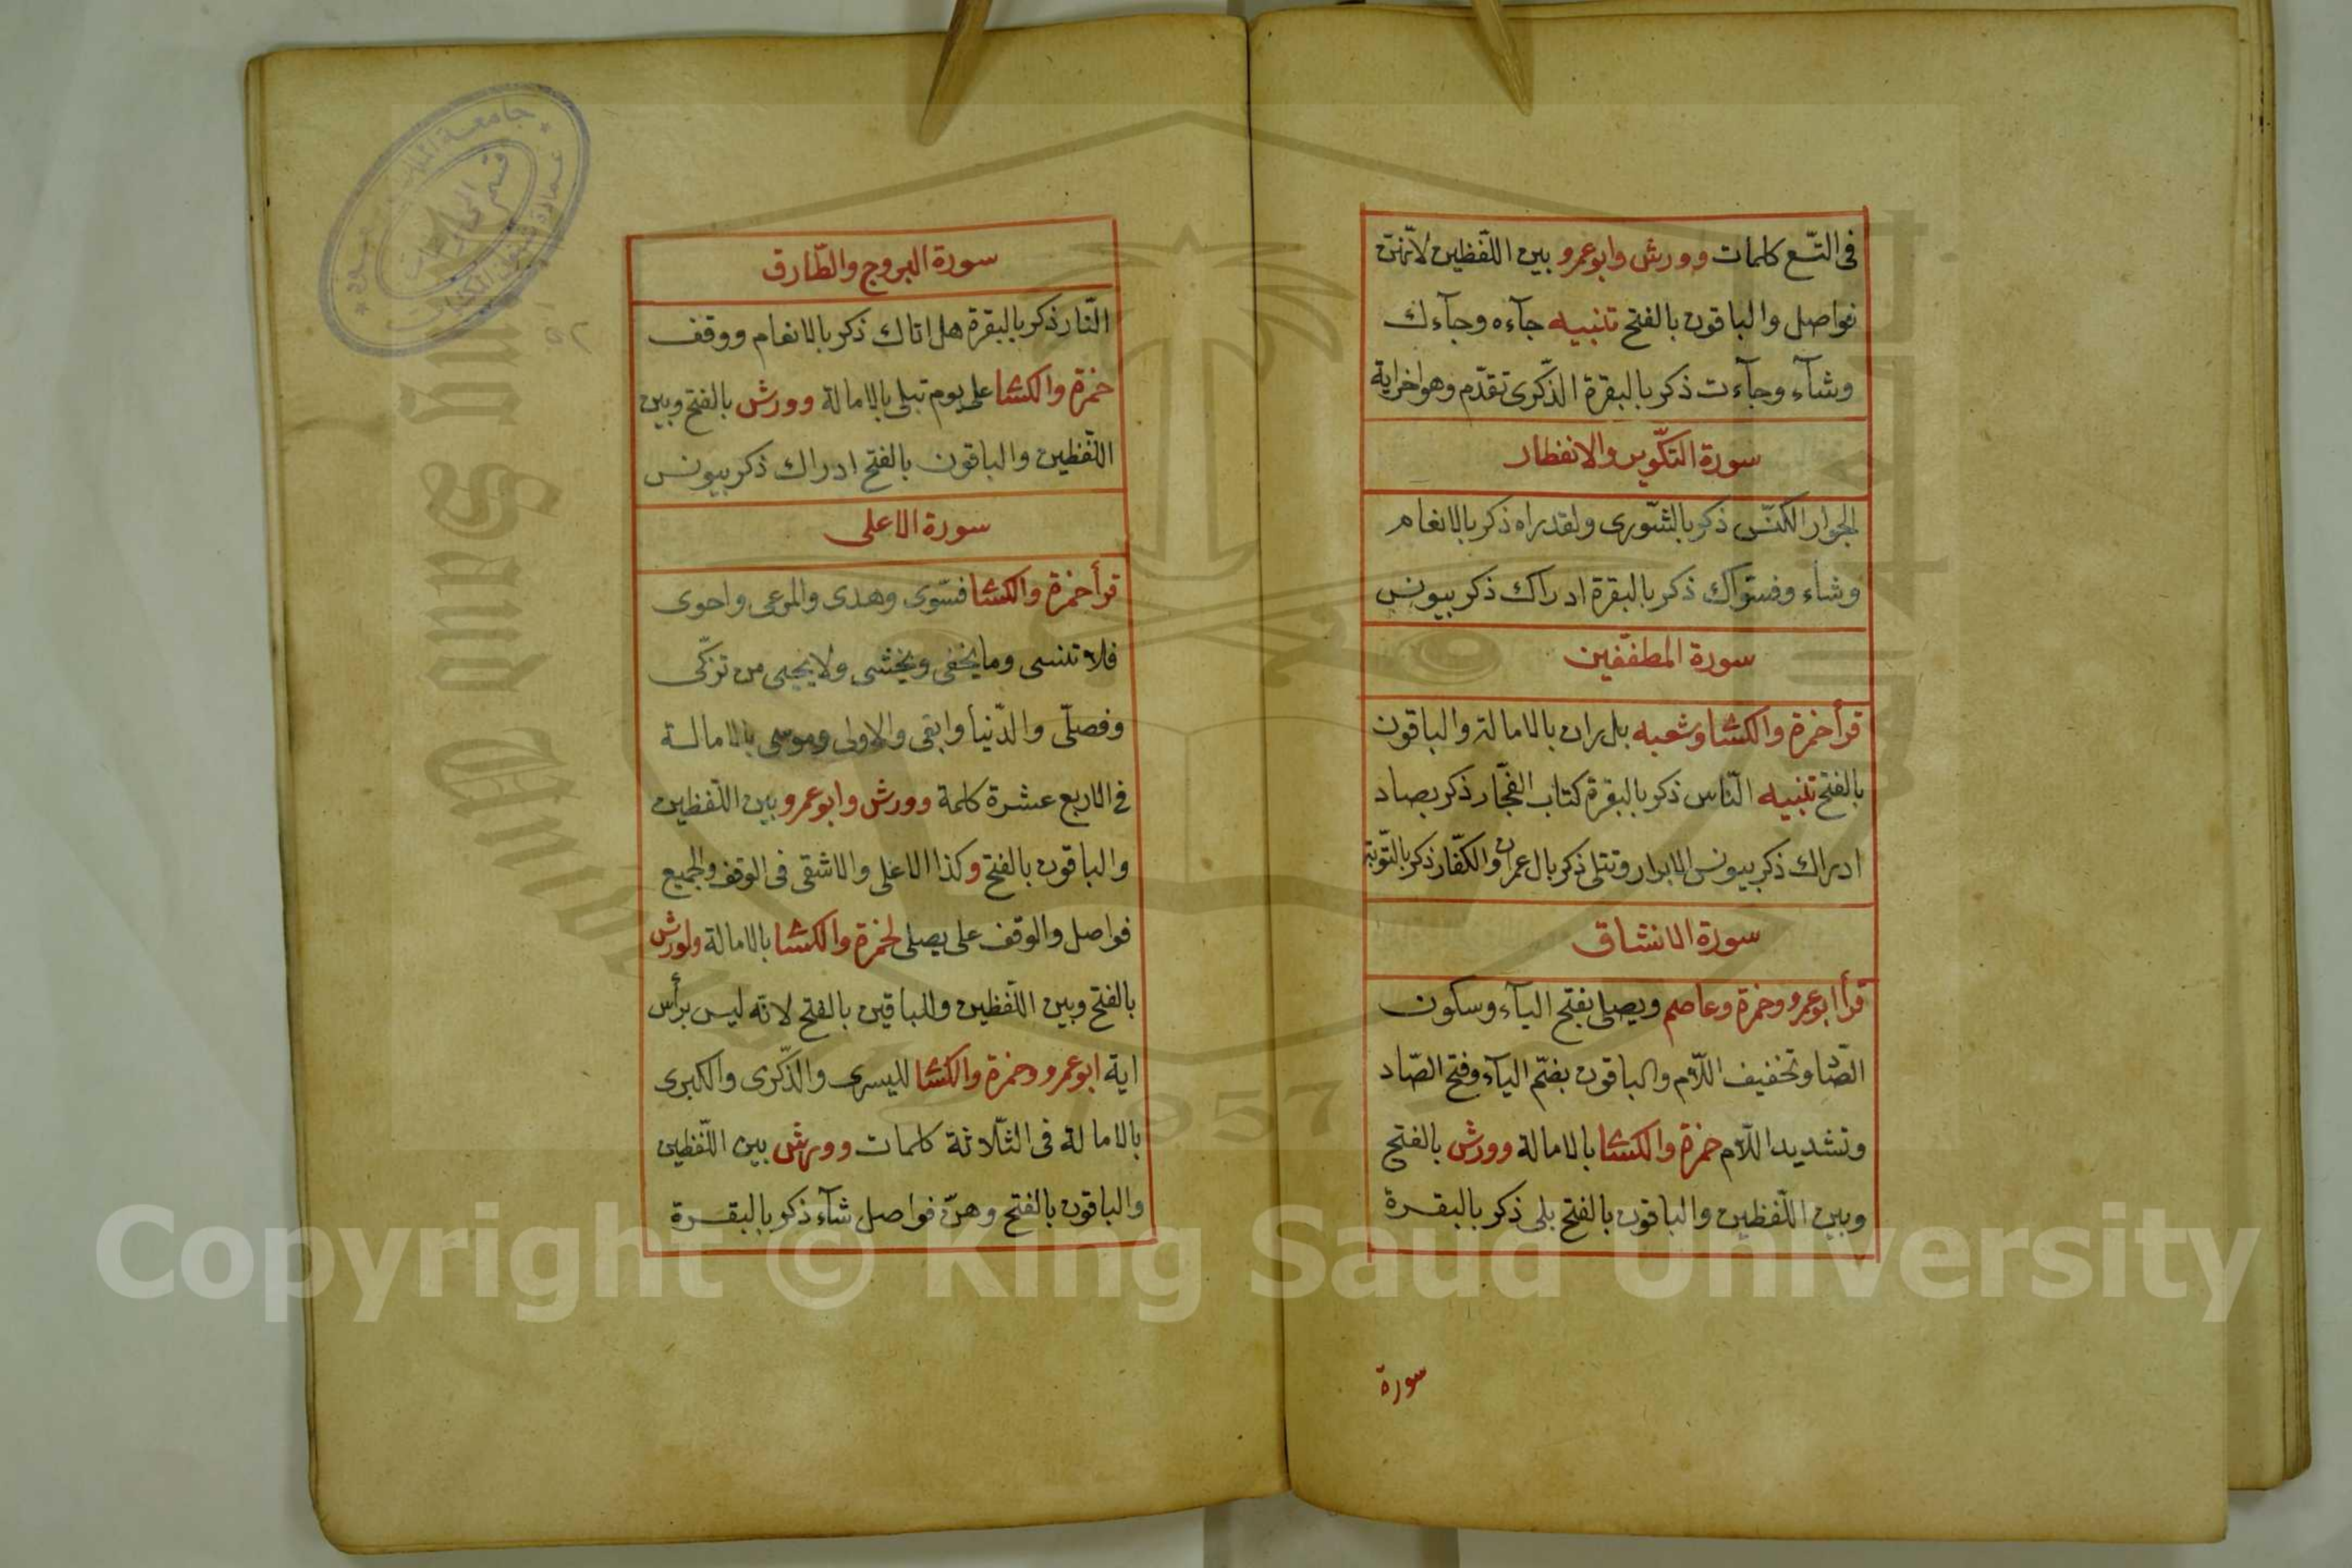 فى التّسع كلمات وورش وابوعمرو بين اللّفظين لانّهنّ
فواصل والباقون بالفتح تنبيه جآءه وجآءك
وشآء وجآءت ذكر بالبقرة الذّكرى تقدّم وهو اخراية
سورة التكّوير والانفطار
الجوار الكنّس ذكر بالشّورى ولقد راه ذكر بالانعام
وشاء وفسوّاك ذكر بالبقرة ادراك ذكر بيونس
سورة المطفّفين
قرأ حمزة والكسّا وشعبه بل ران بالامالة والباقون
بالفتح تنبيه النّاس ذكر بالبقرة كتاب الفجّار ذكر بصاد
ادراك ذكر بيونس الابرار وتتلى ذكر بال عمران والكفّار ذكر بالتّوبة
سورة الانشاق
قرأ ابوعمرو وحمزة وعاصم ويصلى بفتح اليآء وسكون
الصّاد وتخفيف اللّام والباقون بضمّ اليآء وفتح الصّاد
وتشديد اللّام حمزة والكسّا بالامالة وورش بالفتح
وبين اللّفظين والباقون بالفتح بلى ذكر بالبقرة
سورة
سورة البروج والطّارق
النّار ذكر بالبقرة هل اتاك ذكر بالانعام ووقف
حمزة والكسّا على يوم تبلى بالامالة وورش بالفتح وبين
اللّفظين والباقون بالفتح ادراك ذكر بيونس
سورة الاعلى
قرأ حمزة والكسّا فسّوى وهدى والمرعى واحوى
فلا تنسى وما يخفى ويخشى ولا يحيى من تزكّى
وفصلّى والدّنيا وابقى والاولى وموسى بالامالة
فى الاربع عشرة كلمة وورش وابوعمرو بين اللّفظين
والباقون بالفتح وكذا الاعلى والاشقى فى الوقف والجميع
فواصل والوقف على يصلى لحمزة والكسّا بالامالة ولورش
بالفتح وبين اللّفظين وللباقين بالفتح لانّه ليس برأس
اية ابوعمرو وحمزة والكسّا لليسرى والذّكرى والكبرى
بالامالة فى الثّلاثة كلمات وورش بين اللّفظين
والباقون بالفتح وهنّ فواصل شآء ذكر بالبقرة
جامعة الملك سعود
قسم المخطوطات
٥٢
1957
Copyright © King Saud University